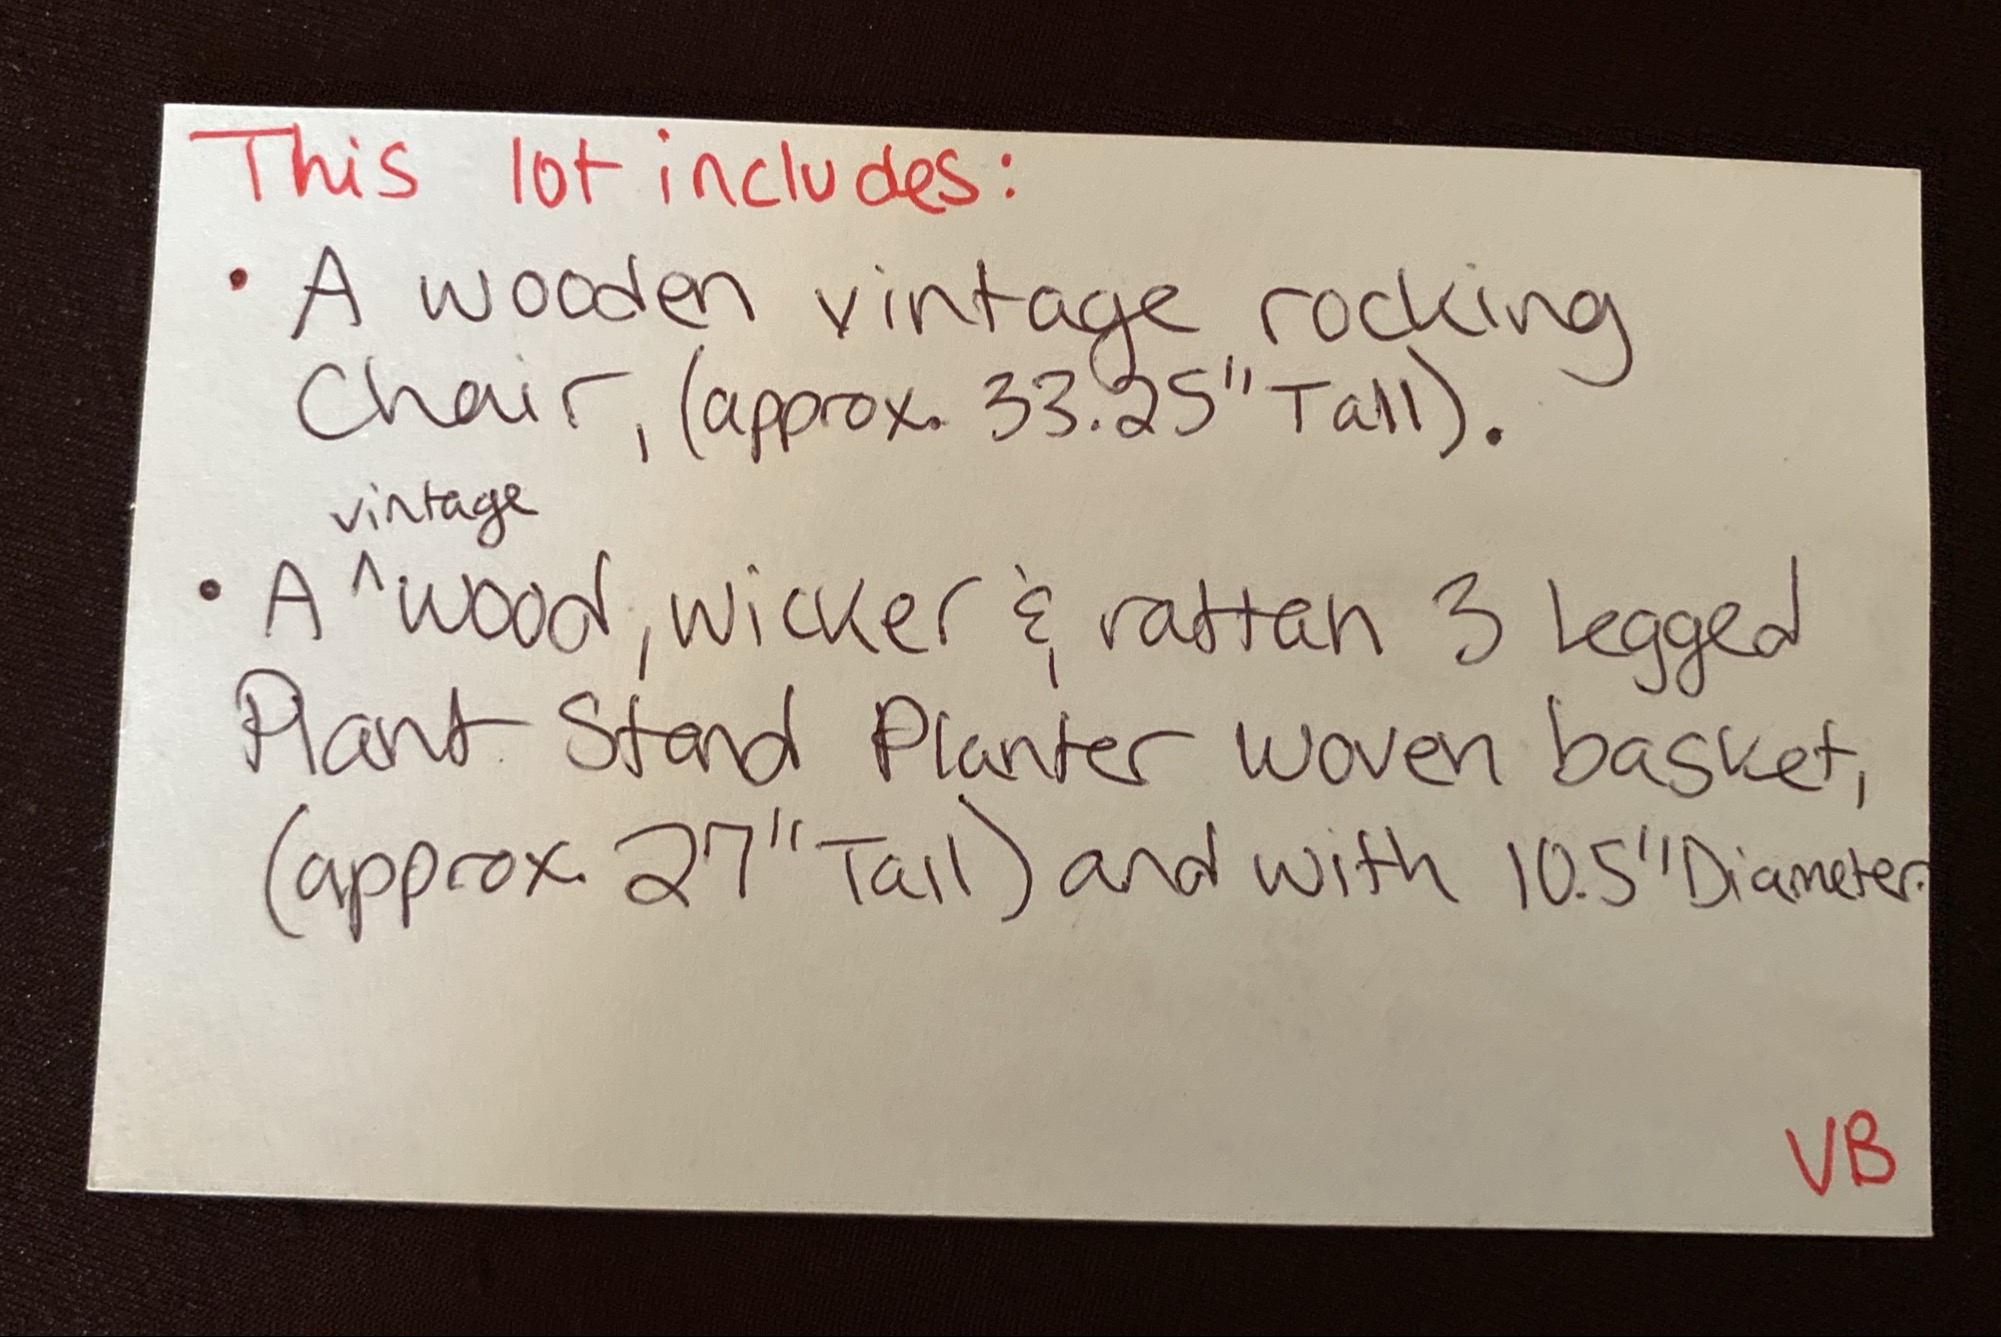 This lot includes:
• A wooden vintage rocking
Chair, (approx. 33.25" Tall).
vintage
• A ^ wood, wicker & rattan 3 legged
Plant Stand Planter woven basket,
(approx. 27" Tall) and with 10.5" Diameter.
VB